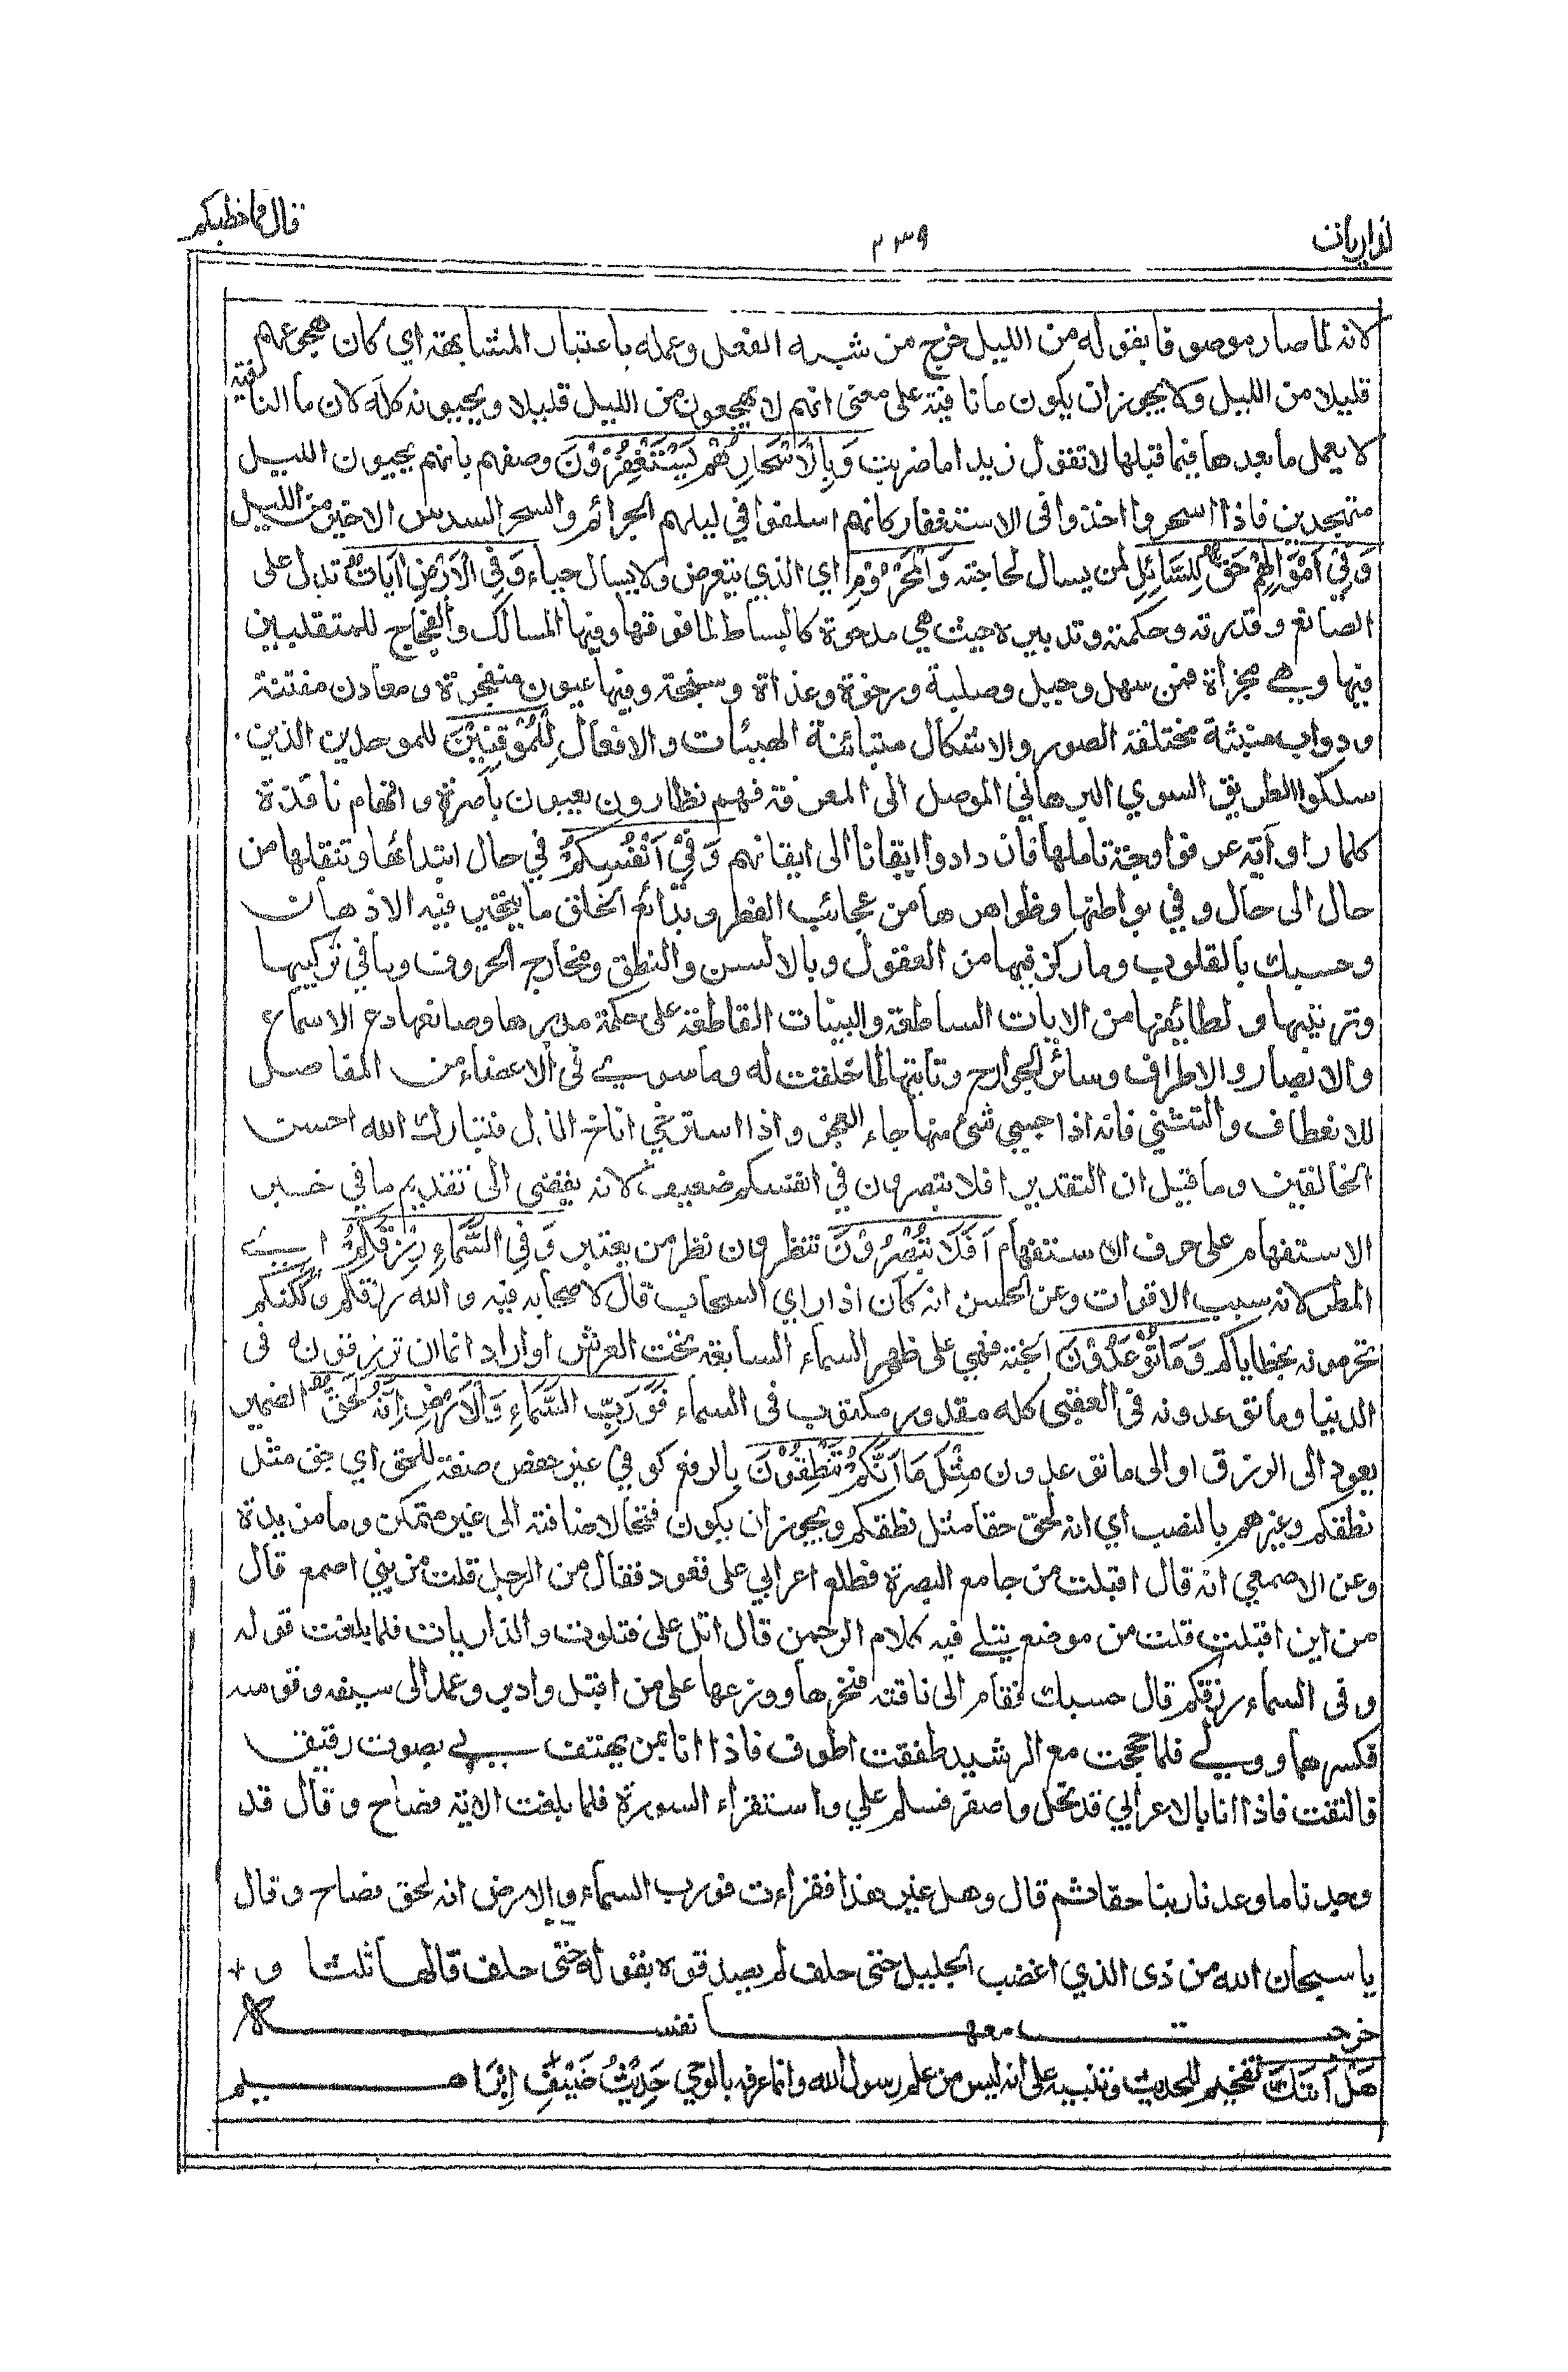 الذاريات
٢٣٩
قال فما خطبكم
لانه لما صار موصوفا بقوله من الليل خرج من شبه الفعل وعمله باعتبار المشابهة اي كان هجوعهم
قليلا من الليل ولا يجوز ان يكون ما نافية على معنى انهم لا يهجعون من الليل قليلا ويحيونه كله لان ما النافية
لا يعمل ما بعدها فيما قبلها لا تقول زيدا ما ضربت وَبِالْاَسْحَارِ هُمْ يَسْتَغْفِرُوْنَ وصفهم بانهم يحيون الليل
متهجدين فاذا اسحروا اخذوا فى الاستغفار كانهم اسلفوا في ليلهم الجرائم والسحر السدس الاخير من الليل
وَفِيْ اَمْوَالِهِمْ حَقٌّ لِلسَّائِلِ لمن يسال لحاجته وَالْمَحْرُوْمِ اي الذي يتعرض ولا يسال حياء وَفِي الْاَرْضِ اٰيَاتٌ تدل على
الصانع وقدرته وحكمته وتدبيره حيث هي مدحوة كالبساط لما فوقها وفيها المسالك والفجاج للمتقلبين
فيها وهي مجزاة فمن سهل وجبل وصلبة ورخوة وعذاة وسبخة وفيها عيون منفجرة ومعادن مفتنة
ودواب منبثة مختلفة الصور والاشكال متباينة الهيئات والافعال لِلْمُوْقِنِيْنَ للموحدين الذين
سلكوا الطريق السوي البرهاني الموصل الى المعرفة فهم نظارون بعيون باصرة وافهام نافذة
كلما راو اٰية عرفوا وجه تاملها فازدادوا ايقانا الى ايقانهم وَفِيْ اَنْفُسِكُمْ في حال ابتدائها وتنقلها من
حال الى حال وفي بواطنها وظواهرها من عجائب الفطر وبدائع الخلق ما يتحير فيه الاذهان
وحسبك بالقلوب وما ركز فيها من العقول وبالالسن والنطق ومخارج الحروف وما في تركيبها
وترتيبها ولطائفها من الايات الساطعة والبينات القاطعة على حكمة مدبرها وصانعها دع الاسماع
والابصار والاطراف وسائر الجوارح وتاتيها لما خلقت له وما سوي في الاعضاء من المفاصل
للانعطاف والتثني فانه اذا جسي شئ منها جاء العجز واذا استرخي اناخ الذل فتبارك الله احسن
الخالقين وما قيل ان التقدير افلا تبصرون في انفسكم ضعيف لانه يفضى الى تقديم ما في خبر
الاستفهام على حرف الاستفهام اَفَلَا تُبْصِرُوْنَ تنظرون نظر من يعتبر وَفِي السَّمَاءِ رِزْقُكُمْ اي
المطر لانه سبب الاقوات وعن الحسن انه كان اذا راي السحاب قال لاصحابه فيه والله رزقكم ولكنكم
تحرمونه بخطاياكم وَمَا تُوْعَدُوْنَ الجنة فهي على ظهر السماء السابعة تحت العرش او اراد انما ان ترزقونه فى
الدنيا وما توعدونه في العقبى كله مقدور مكتوب فى السماء فَوَرَبِّ السَّمَاءِ وَالْاَرْضِ اِنَّهُ لَحَقٌّ الضمير
يعود الى الرزق او الى ما توعدون مِثْلَ مَا اَنَّكُمْ تَنْطِقُوْنَ بالرفع كوفي غير حفص صفة للحق اي حق مثل
نطقكم وغيرهم بالنصب اي انه لحق حقا مثل نطقكم ويجوز ان يكون فتحا لاضافته الى غير متمكن وما مزيدة
وعن الاصمعي انه قال اقبلت من جامع البصرة فطلع اعرابي على قعود فقال من الرجل قلت من بني اصمع قال
من اين اقبلت قلت من موضع يتلے فيه كلام الرحمن قال اتل على فتلوت والذاريات فلما بلغت قوله
و فى السماء رزقكم قال حسبك فقام الى ناقته فنحرها ووزعها على من اقبل وادبر وعمد الى سيفه وقوسه
فكسرهما وولے فلما حججت مع الرشيد طفقت اطوف فاذا انا بمن يهتف بي بصوت رقيق
فالتفت فاذا انا بالاعرابي قد نحل واصفر فسلم علي واستقراء السورة فلما بلغت الاية فصاح وقال قد
وجدنا ما وعدنا ربنا حقا ثم قال وهل غير هذا فقراءت فورب السماء والارض انه لحق فصاح وقال
يا سبحان الله من ذى الذي اغضب الجليل حتى حلف لم يصدقوه بقوله حتى حلف قالها ثلثا و +
خرجت معها نفسه
هَلْ اَتٰىكَ تفخيم للحديث وتنبيه على انه ليس من علم رسول الله وانما عرفه بالوحي حَدِيْثُ ضَيْفِ اِبْرَاهيم